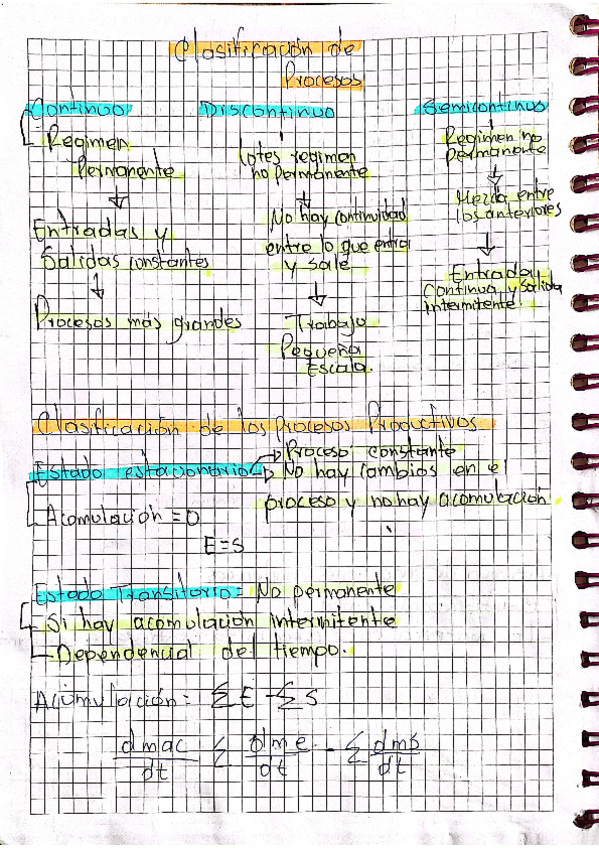 Clasificación de
Procesos
Continuo
Regimen
Permanente
Entradas y
Salidas constantes
Procesos más grandes
Discontinuo
lotes regimen
no permanente
No hay continuidad
entre lo que entra
y sale
Trabajo
Pequeña
Escala.
Semicontinuo
Regimen no
permanente
Mezcla entre
los anteriores
Entrada
continua y salida
intermitente.
Clasificación de los Procesos Productivos
Estado estacionario
Proceso constante
No hay cambios en el
proceso y no hay acomulación
Acomulación = 0
E = S
Estado Transitorio: No permanente
Si hay acomulación intermitente
Dependencial del tiempo.
Acumulación = ΣE - ΣS
dmac/dt Σ dme/dt - Σ dms/dt